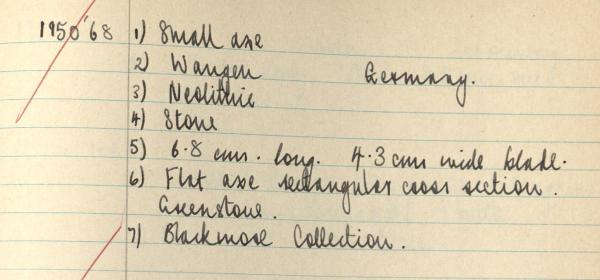 1950'68 1) Small axe
2) Wangen Germany.
3) Neolithic
4) Stone
5) 6.8 cms. long. 4.3 cms wide blade.
6) Flat axe rectangular cross section.
Greenstone.
7) Blackmore Collection.